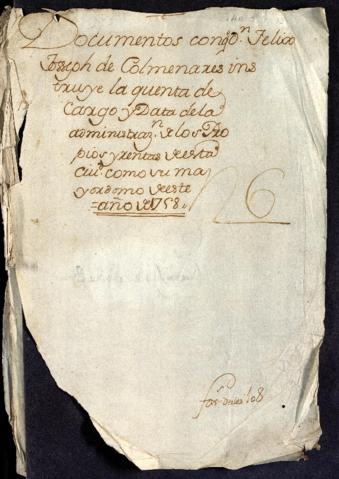 Documentos con q.e D.n Felix
Joseph de Colmenares ins
truye la quenta de
Cargo y Data de la
administraz.n de los Pro
pios y rentas de esta
ciu.d como su ma
yordomo de este
=año de 1758.
26
108